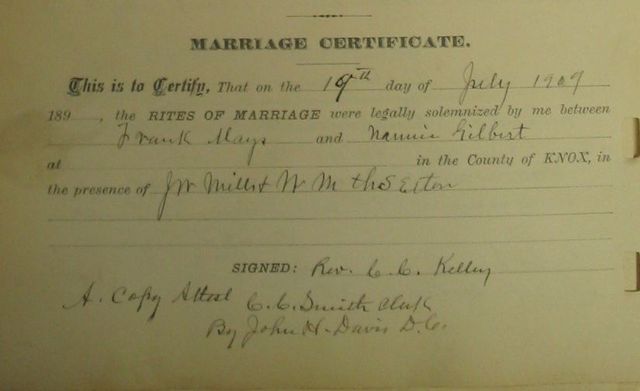 MARRIAGE CERTIFICATE.
This is to Certify, That on the 19th day of July 1909
189 , the RITES OF MARRIAGE were legally solemnized by me between
Frank Mays and Nannie Gilbert
at in the County of KNOX, in
the presence of J W Mills & W M
SIGNED: Rev. C. C. Kelley
A. Copy Attest C. C. Smith Clerk
By John H. Davis D. C.